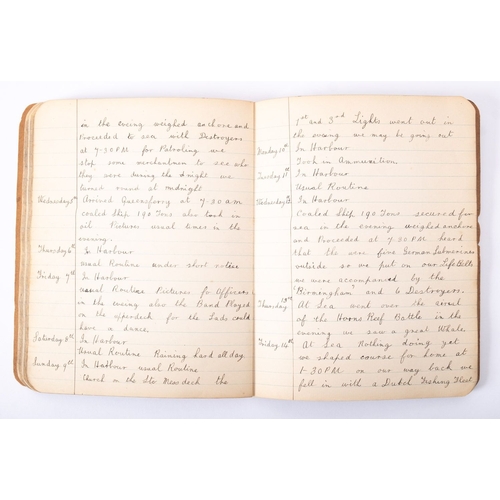 in the evening weighed anchor and
Proceeded to sea with Destroyers
at 7-30 PM for Patroling we
stop some merchantmen to see who
they were during the knight we
turned round at midnight
Wednesday 5th Arrived Queensferry at 7.30 am
coaled Ship 190 Tons also took in
oil Pictures usual times in the
evening.
Thursday 6th In Harbour
usual Routine under short notice
Friday 7th In Harbour
usual Routine Pictures for Officers
in the evening also the Band Played
on the upperdeck for the Lads could
have a dance.
Saturday 8th In Harbour
Usual Routine Raining hard all day.
Sunday 9th In Harbour usual Routine
Church on the Sto Mess deck the
1st and 3rd Lights went out in
the evening we may be going out
Monday 10th In Harbour
Took in Ammunition.
Tuesday 11th In Harbour
Usual Routine
Wednesday 12 In Harbour
Coaled Ship 190 Tons secured for
sea in the evening weighed anchor
and Proceeded at 7.30 PM heard
that there were five German Submarines
outside so we put on our Life Belts
we were accompanied by the
"Birmingham" and 6 Destroyers.
Thursday 13th At Sea went over the scene
of the Horns Reef Battle in the
evening we saw a great Whale.
Friday 14th At Sea Nothing doing yet
we shaped course for home at
1-30 PM on our way back we
fell in with a Dutch Fishing Fleet